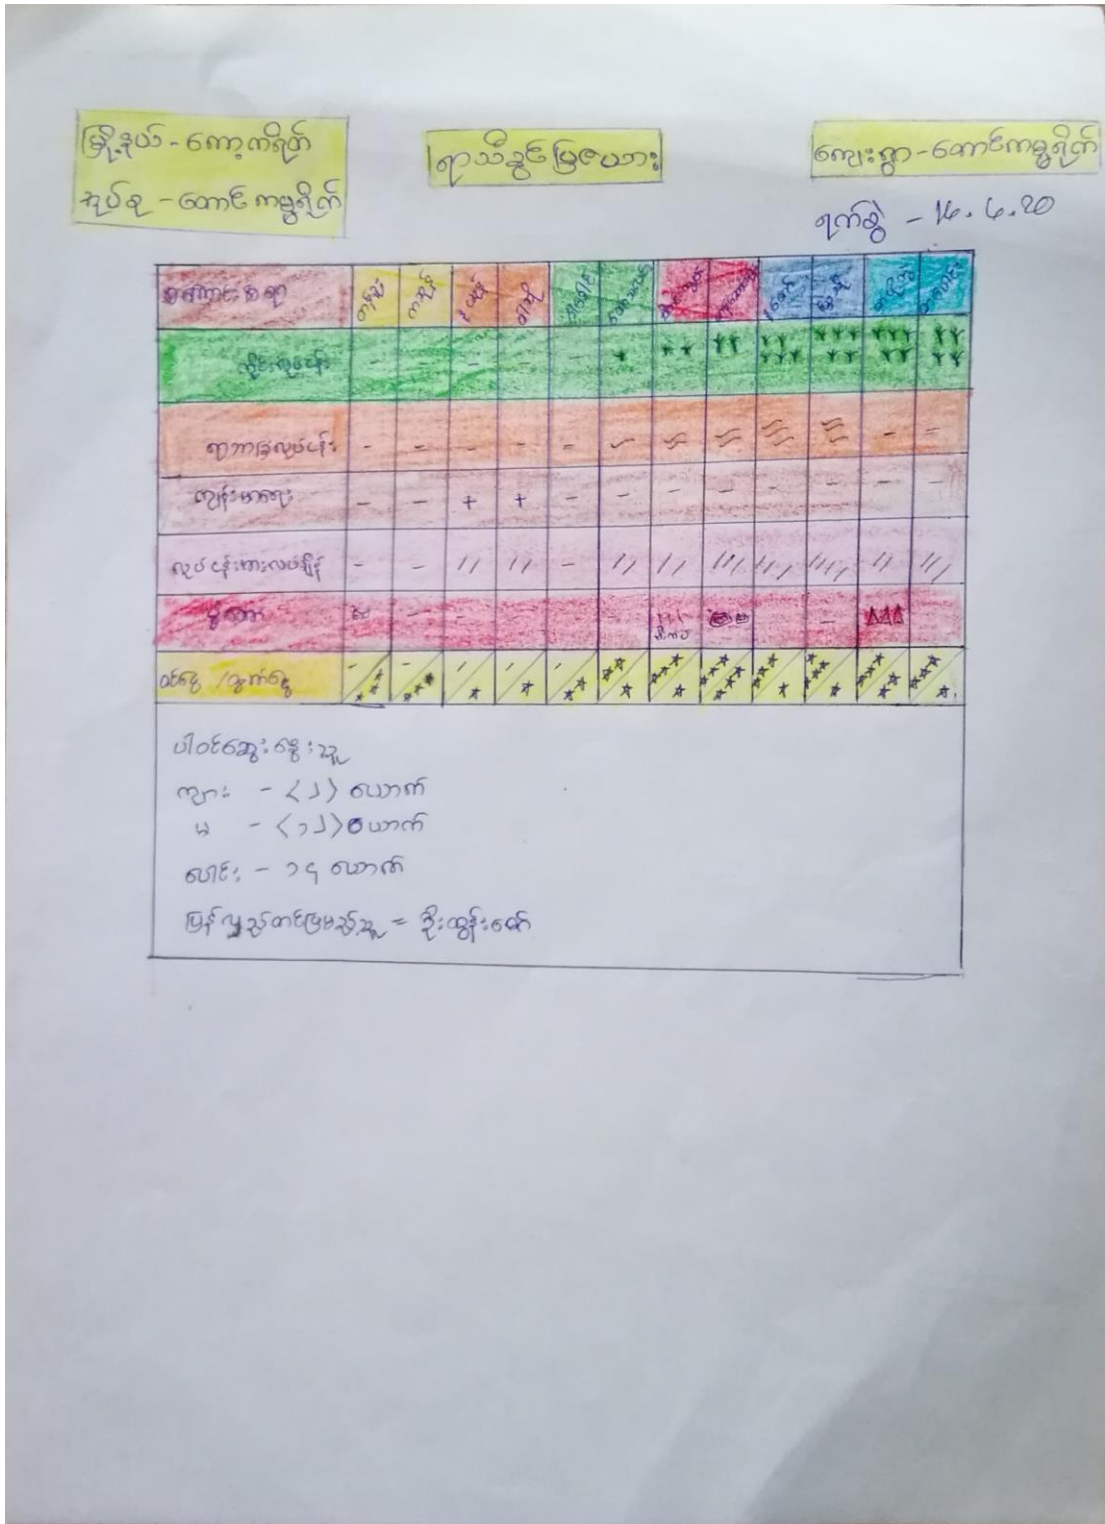 မြို့နယ် - ကော့ကရိတ်
ရာသီခွင်ပြဇယား
ကျေးရွာ - ကောင်ကမွရိုက်
အုပ်စု - ကောင်ကမွရိုက်
ရက်စွဲ - 14.6.20
အကြောင်းအရာ တန်ခူး ကဆုန် နယုန် ဝါဆို ဝါခေါင် တော်သလင်း သီတင်းကျွတ် တန်ဆောင်မုန်း နတ်တော် ပြာသို တပို့တွဲ တပေါင်း
ရာဘာခြံလုပ်ငန်း - - - - - - -
ကျန်းမာရေး - - + + - - - - - - - -
လုပ်ငန်းအားလပ်ချိန် - - // // - // // /// /// //// // ///
ပွဲတော်
ဝင်ငွေ / ထွက်ငွေ
ပါဝင်ဆွေးနွေးသူ
ကျား - <၂> ယောက်
မ - <၁၂> ယောက်
ပေါင်း - ၁၄ ယောက်
ပြန်လည်တင်ပြမည့်သူ = ဦးထွန်းဇော်